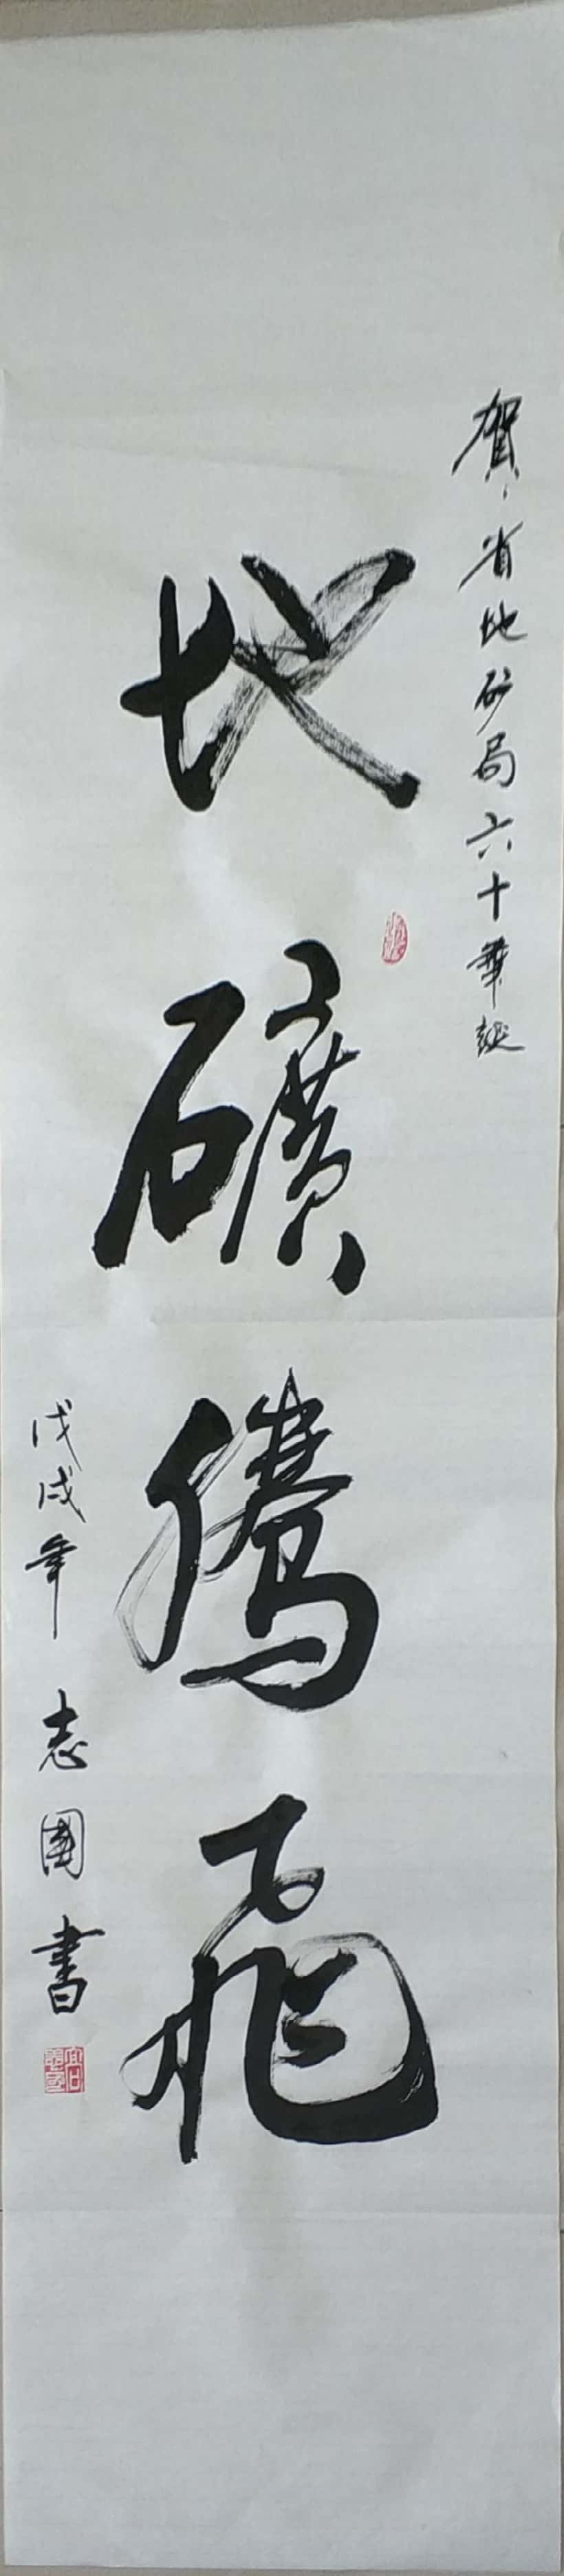 賀省地矿局六十華誕
地礦騰飛
戊戌年 志國書